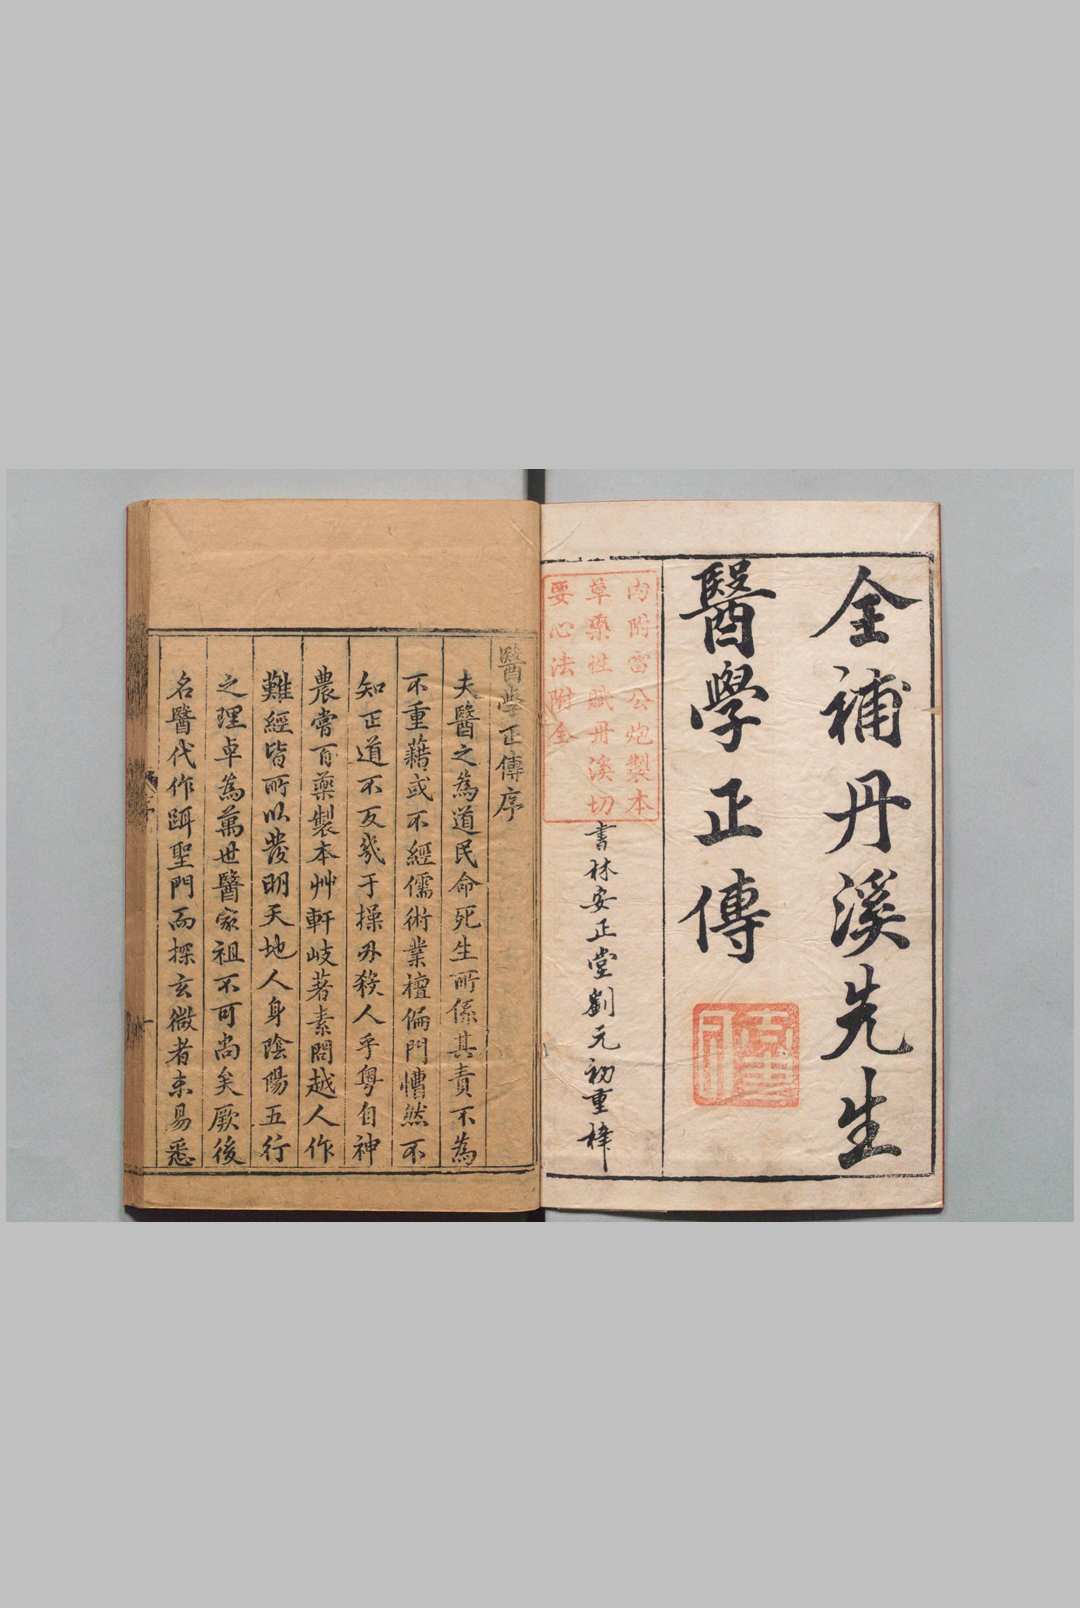 全補丹溪先生
醫學正傳
内附雷公炮製本
草藥性賦丹溪切
要心法附全
書林安正堂劉元初重梓
醫學正傳序
夫醫之為道民命死生所係其責不為
不重藉或不經儒術業擅偏門懵然不
知正道不反幾于操刃殺人乎粤自神
農嘗百藥製本艸軒岐著素問越人作
難經皆所以發明天地人身陰陽五行
之理卓為萬世醫家祖不可尚矣厥後
名醫代作踵聖門而探玄微者未易悉
序
一